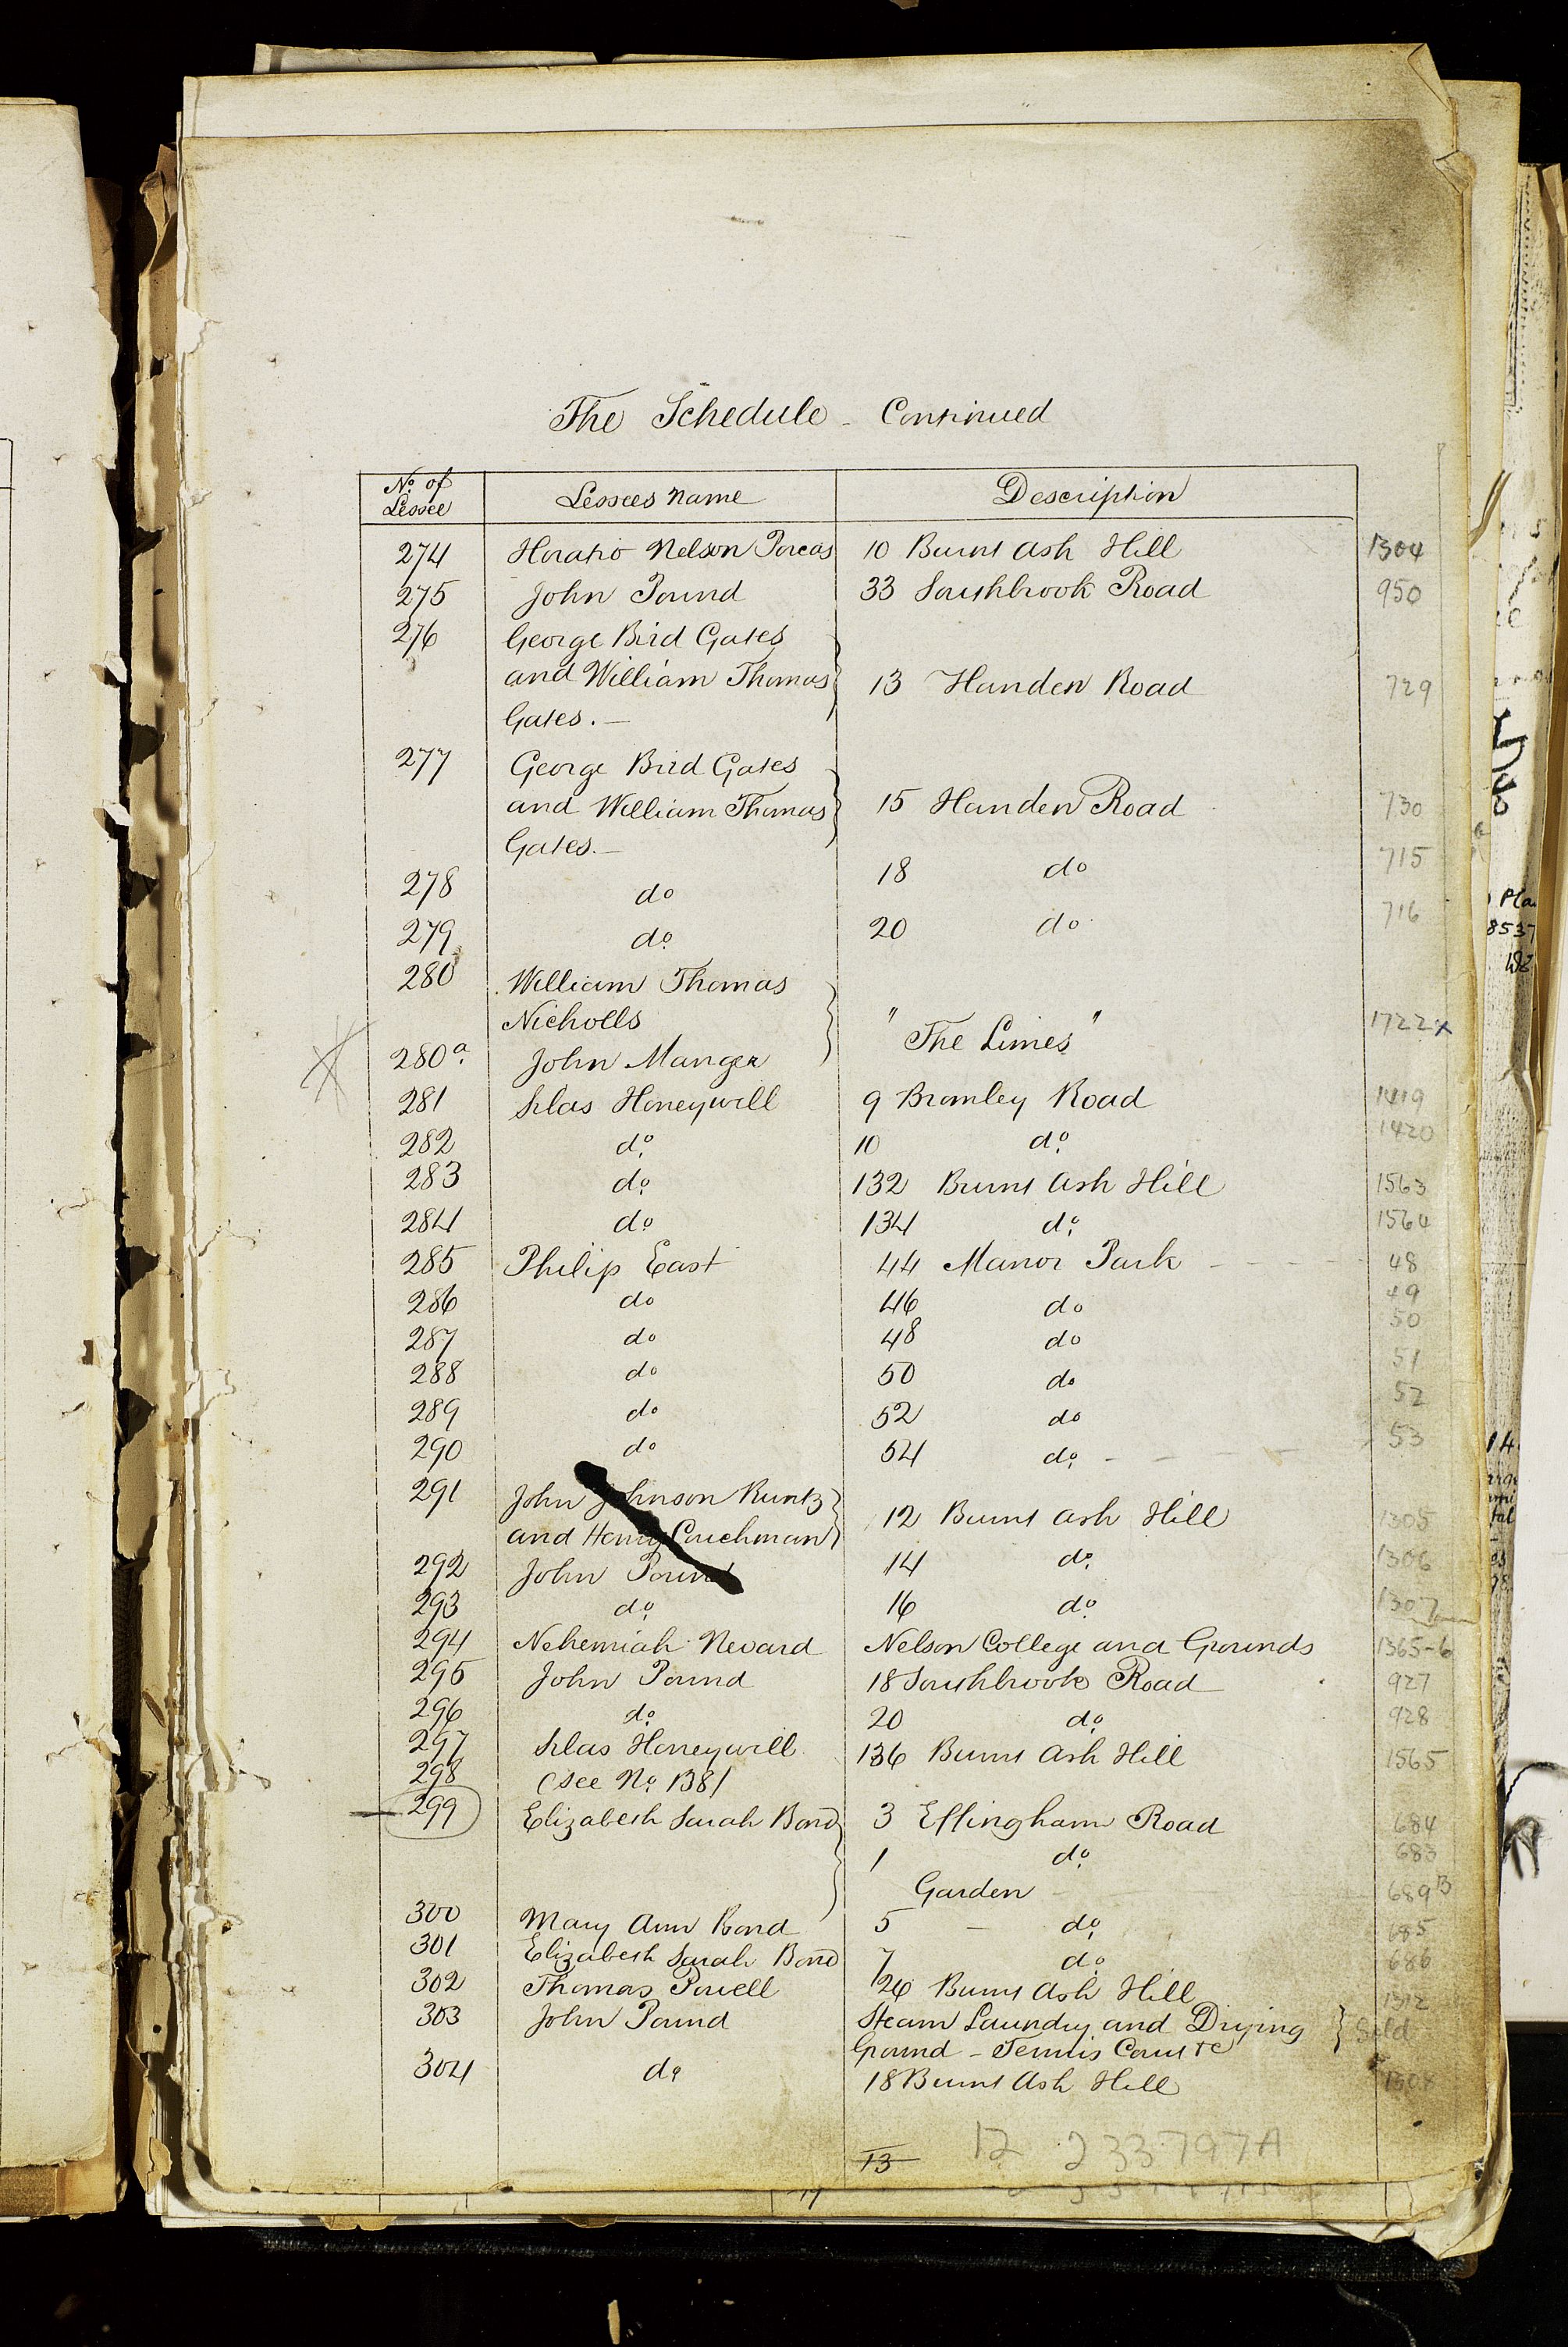 The Schedule - Continued
No. of Lessee Lessees Name Description
274 Horatio Nelson Poreas 10 Burnt Ash Hill 1304
275 John Pound 33 Southbrook Road 950
276 George Bird Gates
and William Thomas 13 Handen Road 729
Gates. —
277 George Bird Gates
and William Thomas 15 Handen Road 730
Gates. —
278 do 18 do 715
279 do. 20 do 716
280 William Thomas
Nicholls "The Limes" 1722x
280a. John Manger
281 Silas Honeywill 9 Bromley Road 1419
282 do. 10 do. 1420
283 do. 132 Burnt Ash Hill 1563
284 do. 134 do. 1564
285 Philip East 44 Manor Park 48
286 do 46 do 49
287 do 48 do 50
288 do 50 do 51
289 do 52 do 52
290 do 54 do. 53
291 John Johnson Runtz
and Henry Couchman 12 Burnt Ash Hill 1305
292 John Pound 14 do. 1306
293 do. 16 do. 1307
294 Nehemiah Nevard Nelson College and Grounds 1365-6
295 John Pound 18 Southbrook Road 927
296 do. 20 do. 928
297 Silas Honeywill 136 Burnt Ash Hill 1565
298 (See No. 138)
299 Elizabeth Sarah Bond 3 Effingham Road 684
1 do. 683
Garden 689B
300 Mary Ann Bond 5 — do. 685
301 Elizabeth Sarah Bond 7 do. 686
302 Thomas Powell 26 Burnt Ash Hill 1312
303 John Pound Steam Laundry and Drying Sold
Ground - Tennis Court &c
304 do. 18 Burnt Ash Hill 1308
13 12 233797A